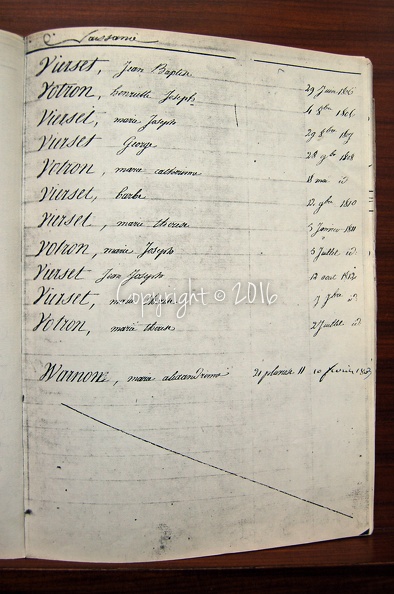 Naissance
Vierset, Jean Baptiste 29 Juin 1806
Votron, henriette Joseph 4 8bre 1806
Vierset, marie Joseph 29 8bre 1807
Vierset George 28 9bre 1808
Votron, marie catherinne 11 mai id
Vierset, barbe 12 9bre 1810
Vierset, marie therese 5 Janvier 1811
Votron, marie Joseph 5 Juillet id
Vierset Jean Joseph 12 aout 1812
Vierset, marie 7bre id
Votron, marie therese 2 Juillet id
Warnon, marie alexandrinne 21 pluviose 11 10 février
Copyright © 2016